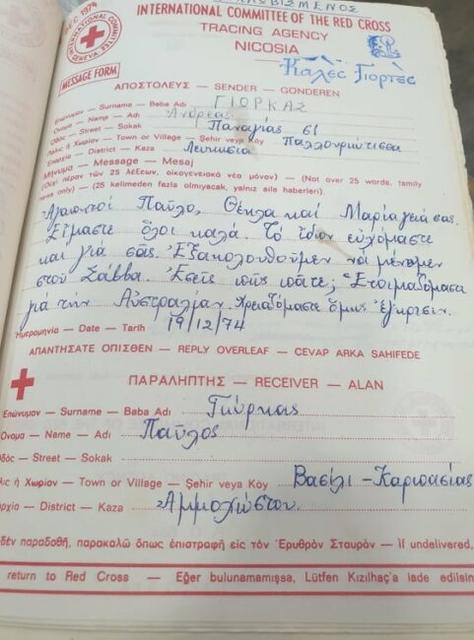 ΚΛΕΒΙΣΜΕΝΟΣ
INTERNATIONAL COMMITTEE OF THE RED CROSS
TRACING AGENCY
NICOSIA
DEC 1974
MESSAGE FORM
Καλές Γιορτές
ΑΠΟΣΤΟΛΕΥΣ — SENDER — GONDEREN
Επώνυμον — Surname — Baba Adı ΓΙΟΡΚΑΣ
Όνομα — Name — Adı Ανδρέας
Οδός — Street — Sokak Παναγίας 61
Πόλις ή Χωρίον — Town or Village — Şehir veya Köy Παλλουριώτισσα
Επαρχία — District — Kaza Λευκωσία
Μήνυμα — Message — Mesaj
(Όχι πέραν των 25 λέξεων, οικογενειακά νέα μόνον) — (Not over 25 words, family
news only) — (25 kelimeden fazla olmıyacak, yalnız aile haberleri)
Αγαπητοί Παύλο, Θέκλα και Μαρία γειά σας.
Είμαστε όλοι καλά. Το ίδιον ευχόμαστε
και γιά σας. Εξακολουθούμεν να μένομεν
στου Σάββα. Εσείς πώς πάτε; Ετοιμαζόμαστε
γιά την Αυστραλίαν. Χρειαζόμαστε όμως έγκρισιν.
Ημερομηνία — Date — Tarih 19/12/74
ΑΠΑΝΤΗΣΑΤΕ ΟΠΙΣΘΕΝ — REPLY OVERLEAF — CEVAP ARKA SAHIFEDE
ΠΑΡΑΛΗΠΤΗΣ — RECEIVER — ALAN
Επώνυμον — Surname — Baba Adı Γιώρκας
Όνομα — Name — Adı Παύλος
Οδός — Street — Sokak
Πόλις ή Χωρίον — Town or Village — Şehir veya Köy Βασίλι - Καρπασίας
Επαρχία — District — Kaza Αμμοχώστου
δέν παραδοθή, παρακαλώ όπως επιστραφή εις τον Ερυθρόν Σταυρόν — If undelivered,
return to Red Cross — Eğer bulunamamışsa, Lütfen Kızılhaç'a iade edilsin